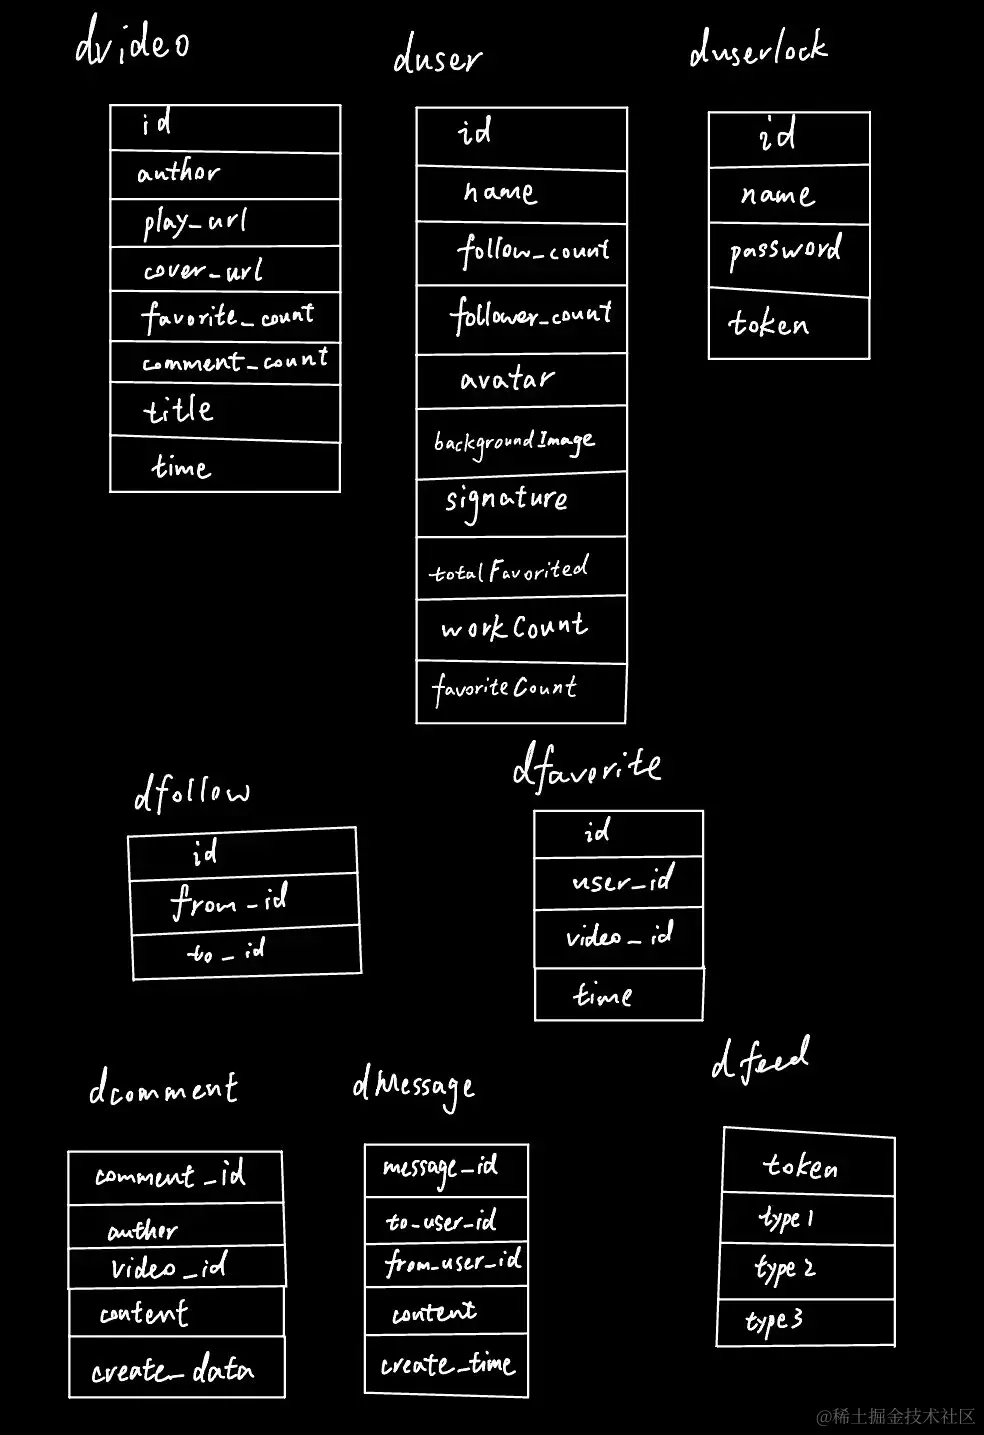 dvideo
id
author
play_url
cover_url
favorite_count
comment_count
title
time
duser
id
name
follow_count
follower_count
avatar
backgroundImage
signature
totalFavorited
workCount
favoriteCount
duserlock
id
name
password
token
dfollow
id
from_id
to_id
dfavorite
id
user_id
video_id
time
dcomment
comment_id
author
video_id
content
create_data
dMessage
message_id
to_user_id
from_user_id
content
create_time
dfeed
token
type1
type2
type3
@稀土掘金技术社区